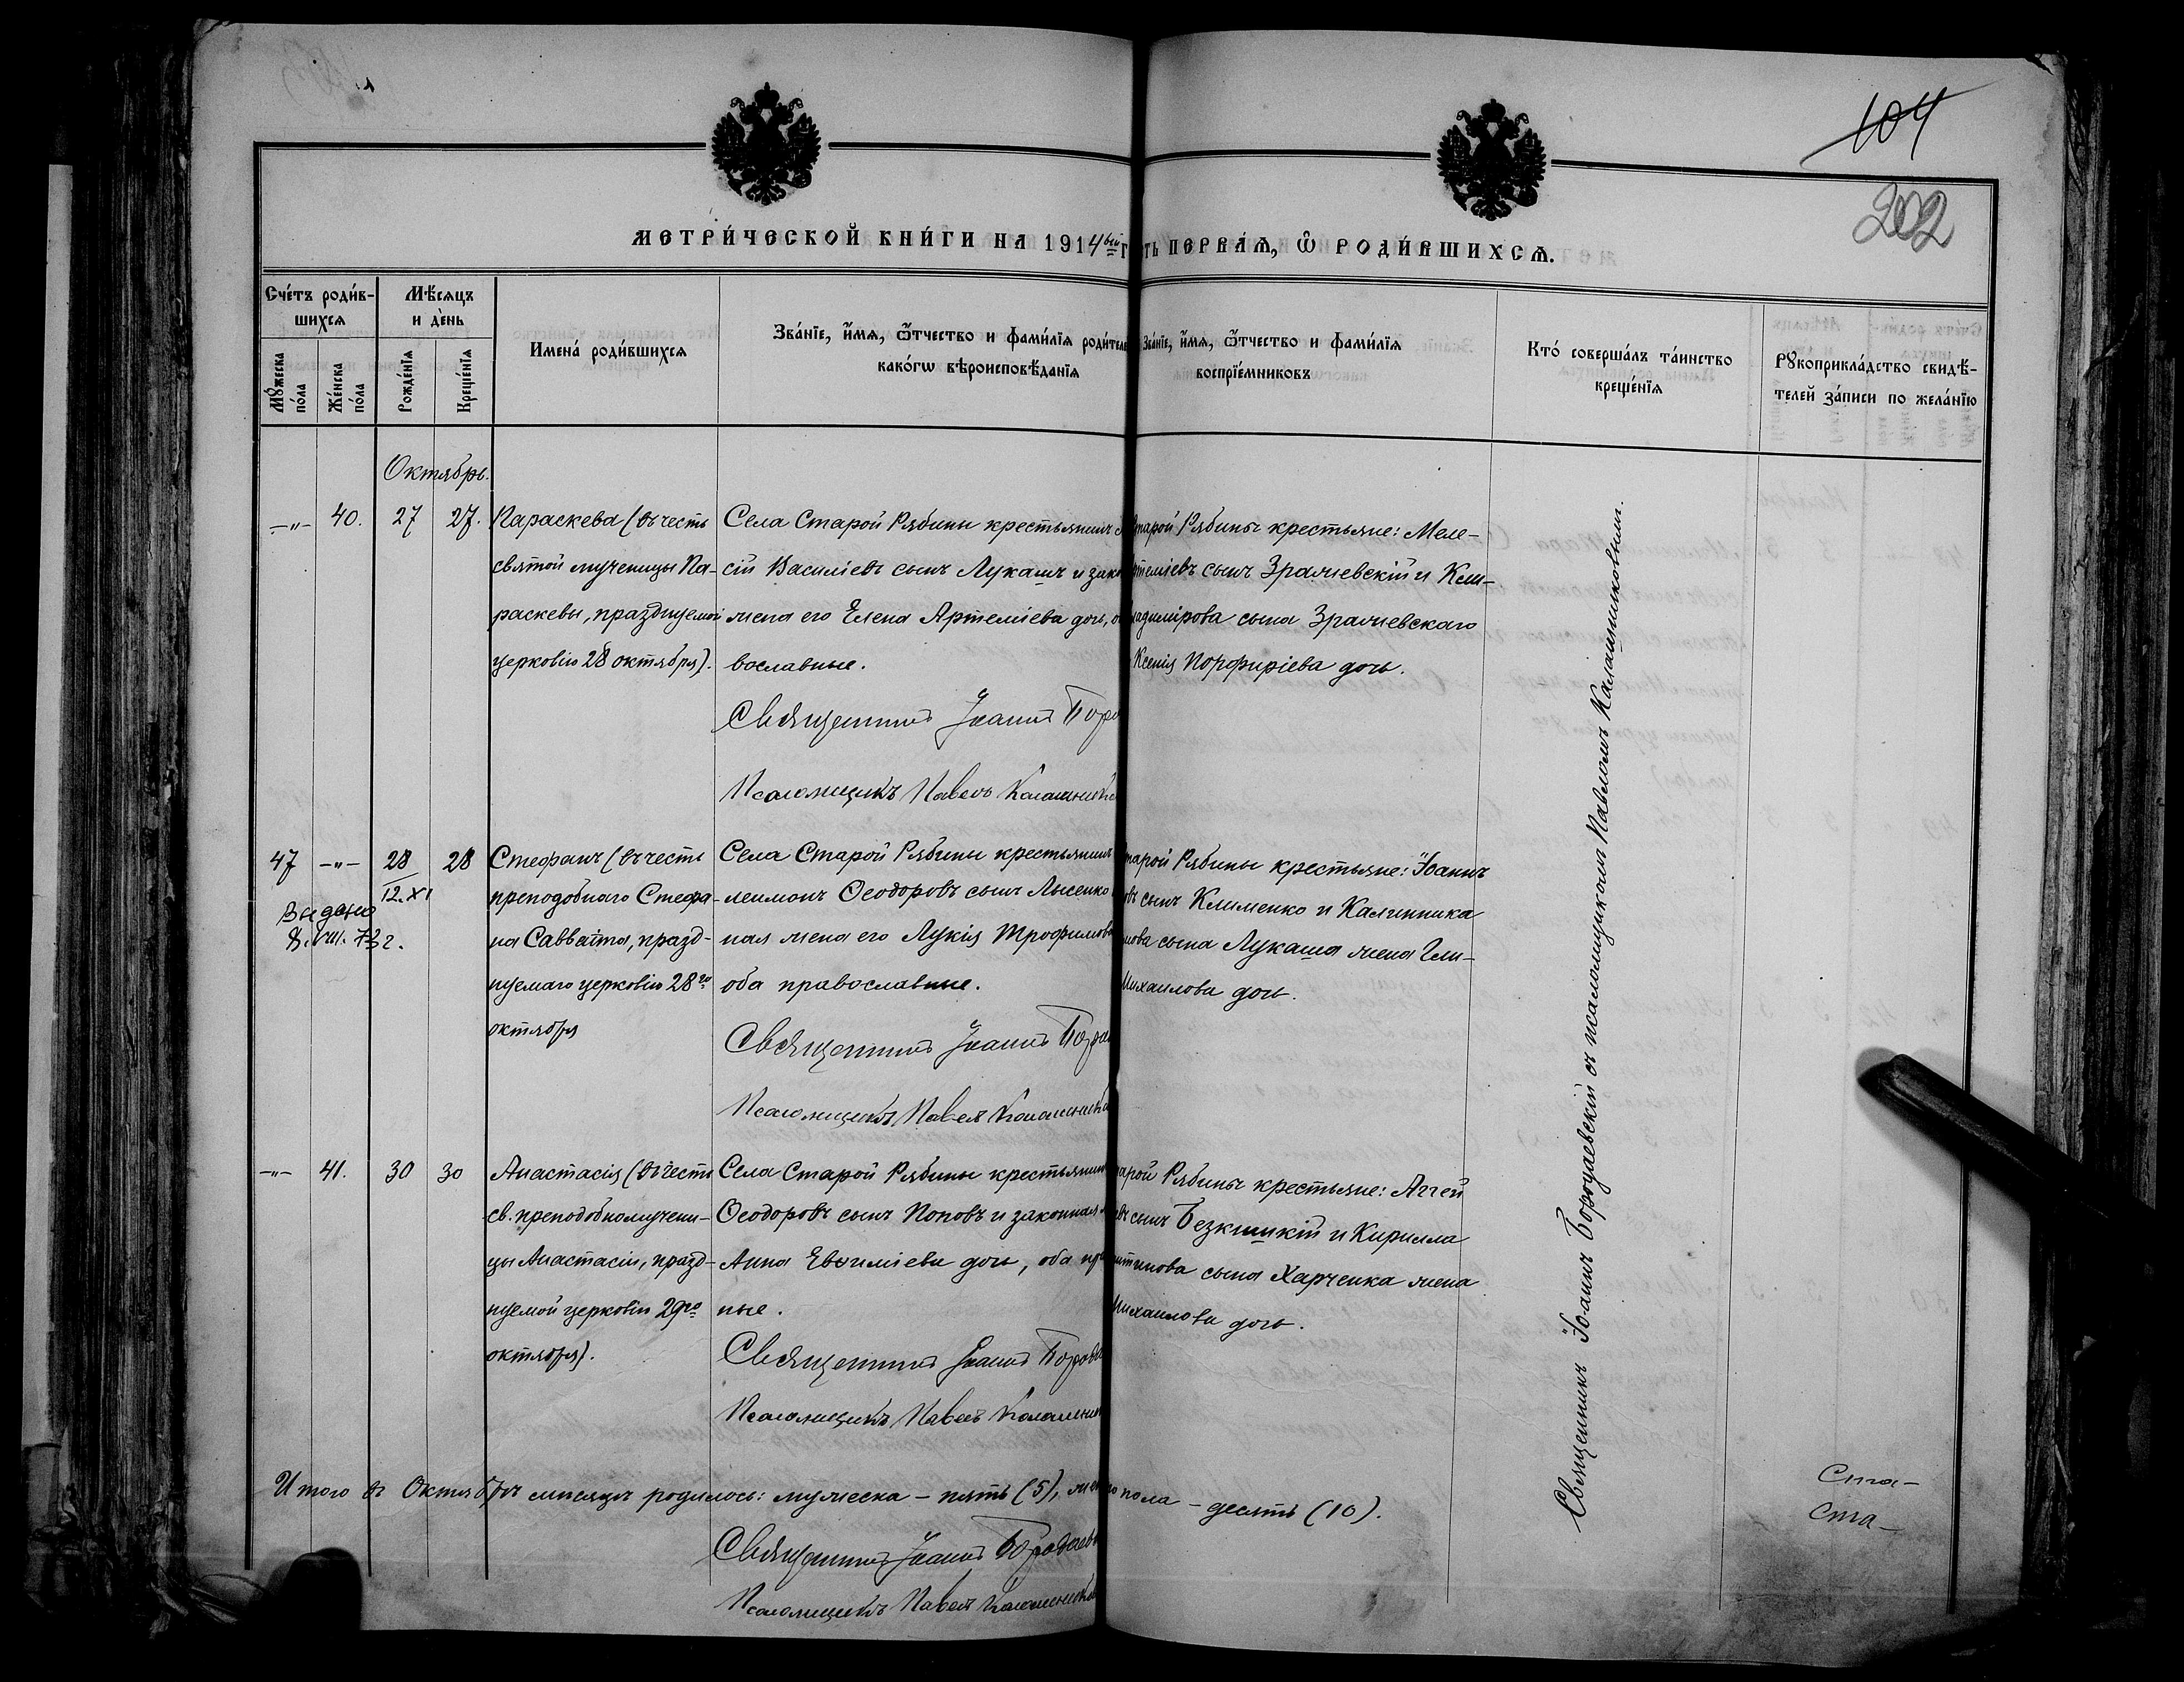 104
202
МЕТРИ́ЧЕСКОЙ КНИ́ГИ НА 1914ый г
ть ПЕРВА́Ѧ, Ѡ҆ РОДИ́ВШИХСѦ.
Сче́тъ роди́в-
шихсѧ
Мꙋ́жеска по́ла
Же́нска по́ла
Мѣ́сѧцъ
и де́нь
Рожде́нїѧ
Креще́нїѧ
Имена́ роди́вшихсѧ
Зва́нїе, и҆́мѧ, ѻ҆́тчество и фами́лїѧ роди́теле
како́гѡ вѣроисповѣ́данїѧ
Зва́нїе, и҆́мѧ, ѻ҆́тчество и фами́лїѧ
воспрїе́мниковъ
Кто́ соверша́лъ та́инство
креще́нїѧ
Рꙋкоприкла́дство свидѣ́-
телей за́писи по жела́нїю
Октябрь.
—"— 40. 27 27.
Параскева (въ честь
святой мученицы Па-
раскевы, празднуемой
церковію 28 октября).
Села Старой Рябины крестьянинъ
сій Василіевъ сынъ Лукашъ и зако
жена его Елена Артеміева дочь, о
вославные.
Священникъ Іоаннъ Боро
Псаломщикъ Павелъ Калашнико
тарой Рябины крестьяне: Меле-
теміевъ сынъ Зражевскій и Кли-
ладимірова сына Зражевскаго
Ксенія Порфиріева дочь.
47 —"— 28 28
12. XI
Выдано
8. VIII. 73 г.
Стефанъ (въ честь
преподобнаго Стефа-
на Савваита, празд-
нуемаго церковію 28го
октября
Села Старой Рябины крестьянинъ
леимонъ Ѳеодоровъ сынъ Лысенко
ная жена его Лукія Трофимова
оба православные.
Священникъ Іоаннъ Боро
Псаломщикъ Павелъ Калашнико
тарой Рябины крестьяне: Іоаннъ
овъ сынъ Клименко и Калинника
мова сына Лукаша жена Гли-
Михаилова дочь.
—"— 41. 30 30
Анастасія (въ честь
св. преподобномучени-
цы Анастасіи, празд-
нуемой церковію 29го
октября).
Села Старой Рябины крестьянинъ
Ѳеодоровъ сынъ Поповъ и законная
Анна Евѳиміева дочь, оба пра
ные.
Священникъ Іоаннъ Бородае
Псаломщикъ Павелъ Калашник
тарой Рябины крестьяне: Аггей
евъ сынъ Безкишкій и Кирилла
нтинова сына Харченка жена
Михаилова дочь.
Священникъ Іоаннъ Бородаевскій съ псаломщикомъ Павломъ Калашниковымъ.
Итого въ Октябрѣ мѣсяцѣ родилось: мужеска – пять (5), жен
го пола – десять (10).
Священникъ Іоаннъ Бородаевс
Псаломщикъ Павелъ Калашников
Ста-
Ста-